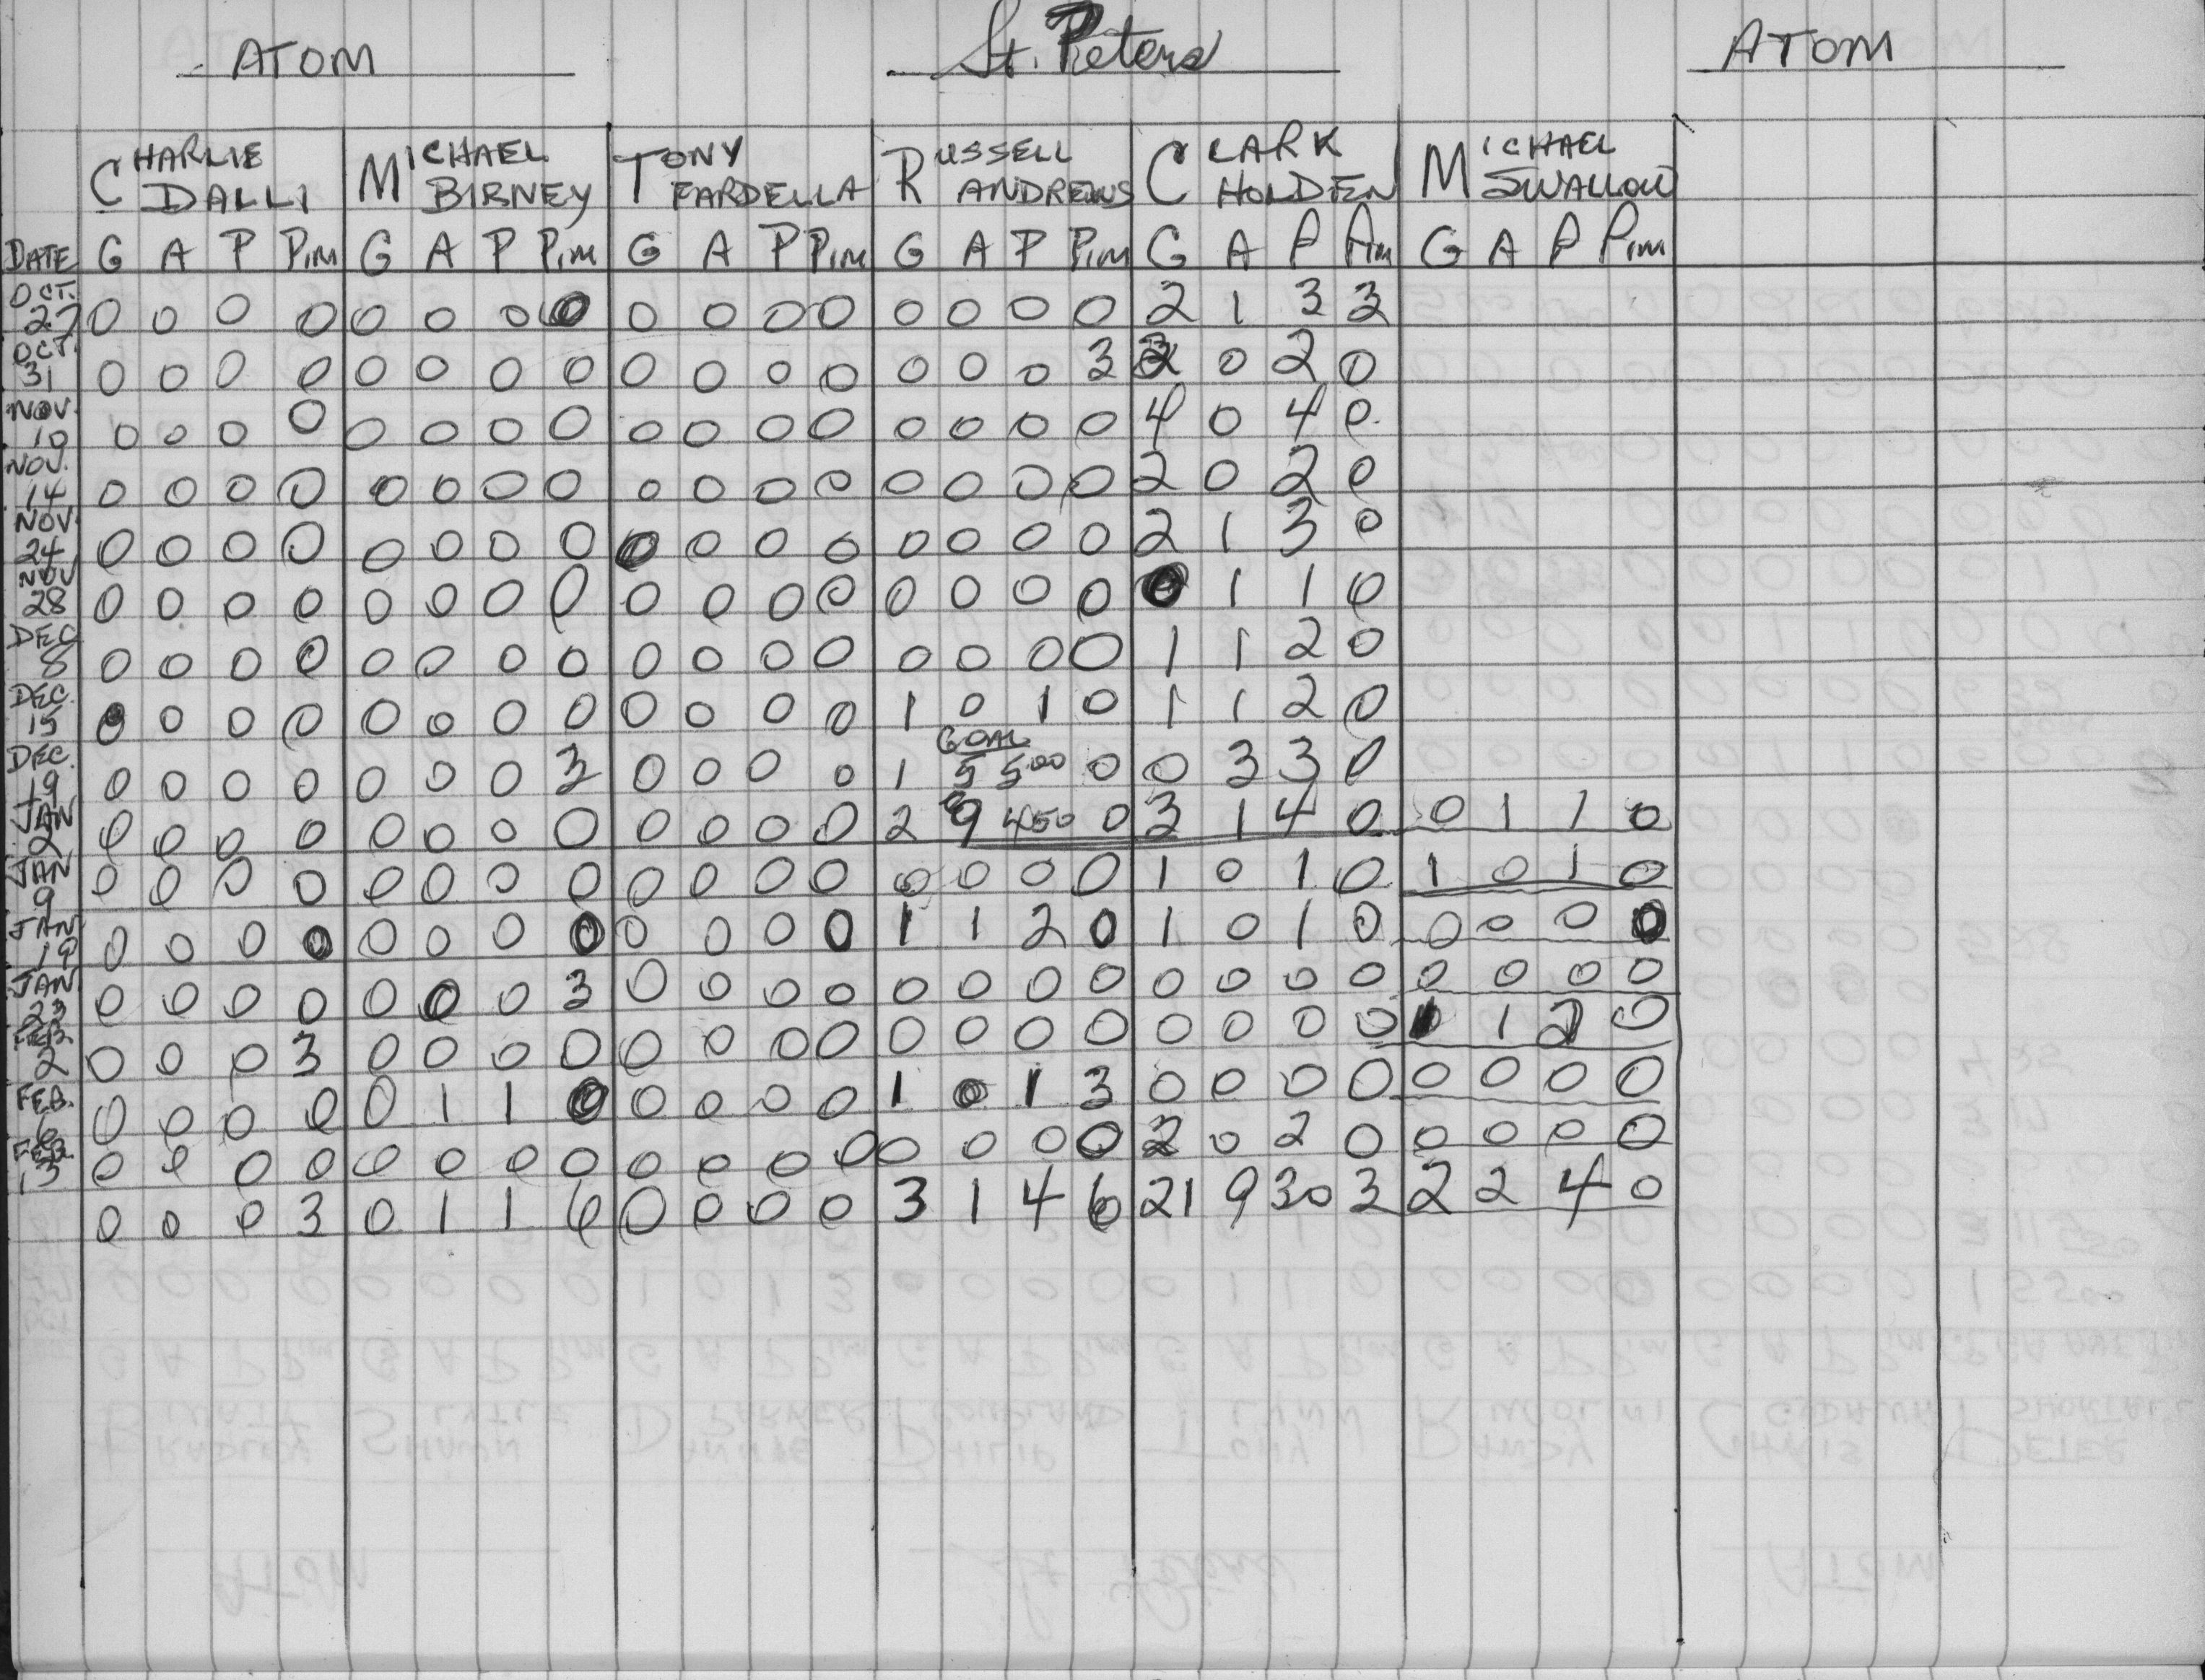 ATOM St. Peters ATOM
CHARLIE DALLI MICHAEL BIRNEY TONY FARDELLA RUSSELL ANDREWS CLARK HOLDEN MICHAEL SWALLOW
DATE G A P Pim G A P Pim G A P Pim G A P Pim G A P Pim G A P Pim
OCT. 27 0 0 0 0 0 0 0 0 0 0 0 0 0 0 0 0 2 1 3 3
OCT. 31 0 0 0 0 0 0 0 0 0 0 0 0 0 0 0 3 2 0 2 0
NOV. 10 0 0 0 0 0 0 0 0 0 0 0 0 0 0 0 0 4 0 4 0
NOV. 14 0 0 0 0 0 0 0 0 0 0 0 0 0 0 0 0 2 0 2 0
NOV. 24 0 0 0 0 0 0 0 0 0 0 0 0 0 0 0 0 2 1 3 0
NOV 28 0 0 0 0 0 0 0 0 0 0 0 0 0 0 0 0 0 1 1 0
DEC 8 0 0 0 0 0 0 0 0 0 0 0 0 0 0 0 0 1 1 2 0
DEC. 15 0 0 0 0 0 0 0 0 0 0 0 0 1 0 1 0 1 1 2 0
GOAL
DEC. 19 0 0 0 0 0 0 0 3 0 0 0 0 1 5 5 00 0 0 3 3 0
JAN 2 0 0 0 0 0 0 0 0 0 0 0 0 2 9 4 50 0 3 1 4 0 0 1 1 0
JAN 9 0 0 0 0 0 0 0 0 0 0 0 0 0 0 0 0 1 0 1 0 1 0 1 0
JAN 19 0 0 0 0 0 0 0 0 0 0 0 0 1 1 2 0 1 0 1 0 0 0 0 0
JAN 23 0 0 0 0 0 0 0 3 0 0 0 0 0 0 0 0 0 0 0 0 0 0 0 0
FEB. 2 0 0 0 3 0 0 0 0 0 0 0 0 0 0 0 0 0 0 0 0 1 1 2 0
FEB. 6 0 0 0 0 0 1 1 0 0 0 0 0 1 0 1 3 0 0 0 0 0 0 0 0
FEB. 13 0 0 0 0 0 0 0 0 0 0 0 0 0 0 0 0 2 0 2 0 0 0 0 0
0 0 0 3 0 1 1 6 0 0 0 0 3 1 4 6 21 9 30 3 2 2 4 0